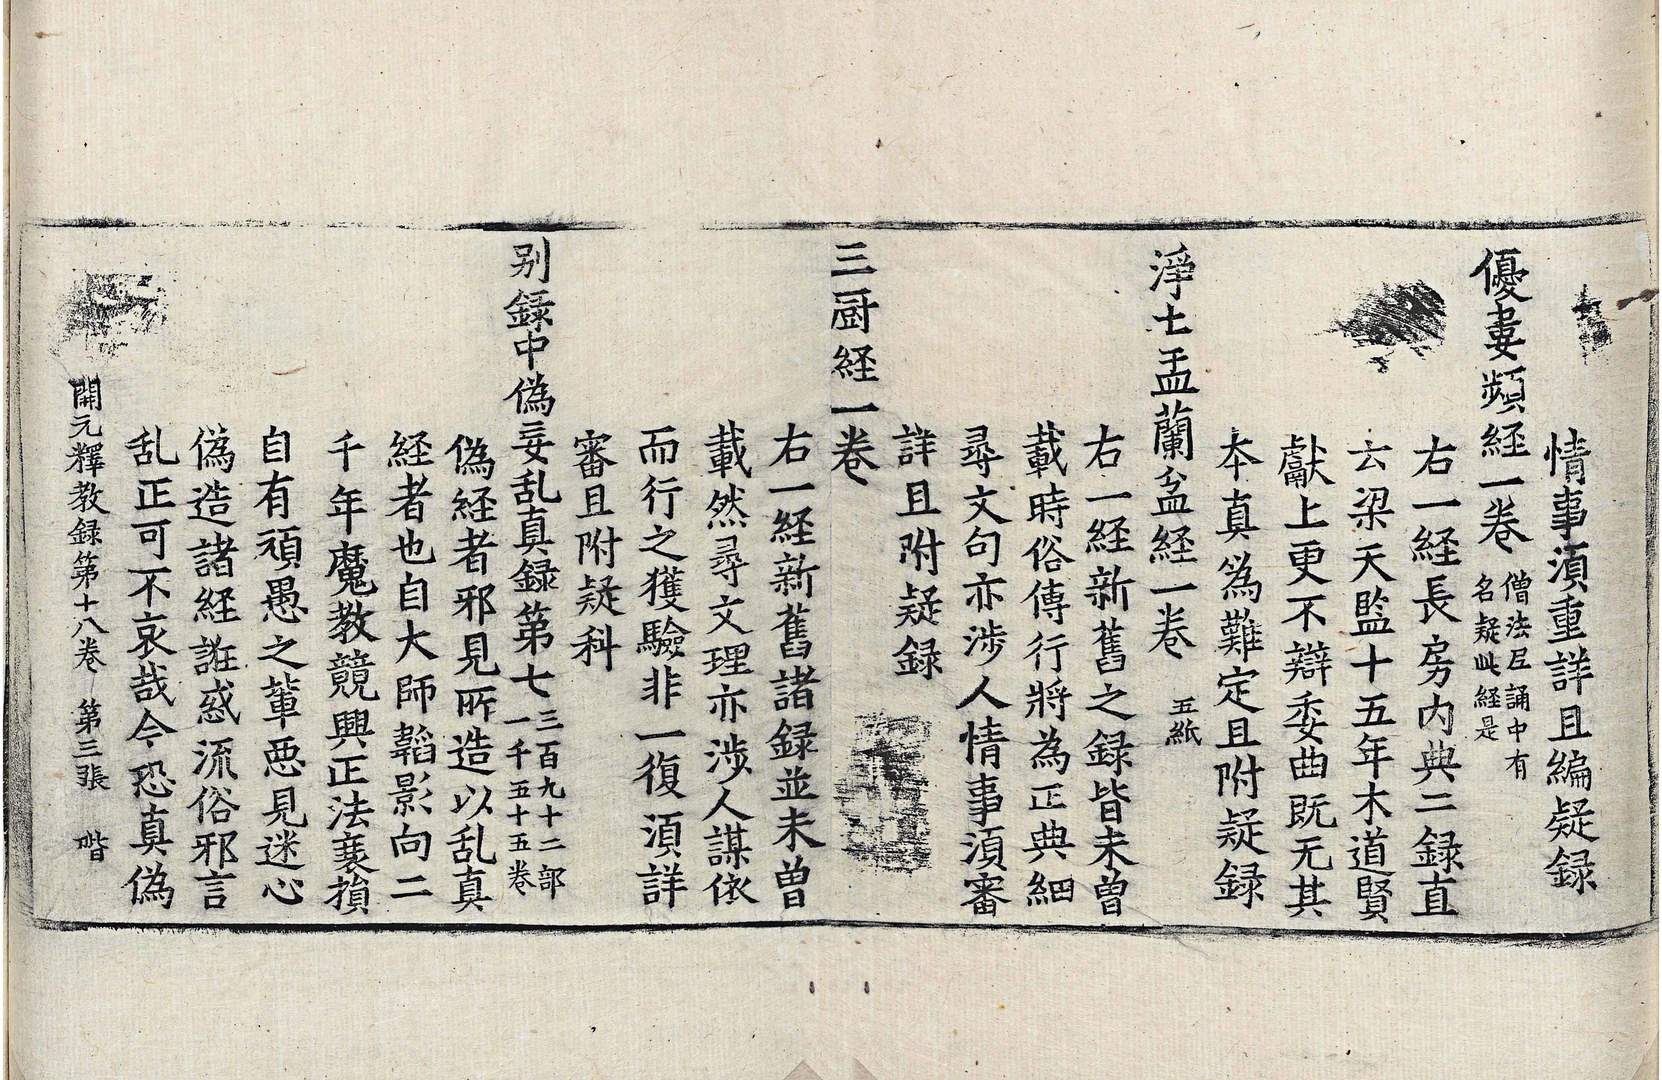 情事湏重詳且編疑録
優婁頻経一卷 僧法尼誦中有
名疑此経是
右一経長房内典二録直
云梁天監十五年木道賢
獻上更不辯委曲既无其
本真爲難定且附疑録
淨土盂蘭盆経一卷 五紙
右一経新舊之録皆未曾
載時俗傳行將為正典細
尋文句亦涉人情事湏審
詳且附疑録
三厨経一卷
右一経新舊諸録並未曾
載然尋文理亦涉人謀依
而行之獲驗非一復湏詳
審且附疑科
別録中偽妄乱真録第七 三百九十二部
一千五十五卷
偽経者邪見所造以乱真
経者也自大師韜影向二
千年魔教競興正法衰損
自有頑愚之輩惡見迷心
偽造諸経誑惑流俗邪言
乱正可不哀哉今恐真偽
開元釋教録第十八卷 第三張 階